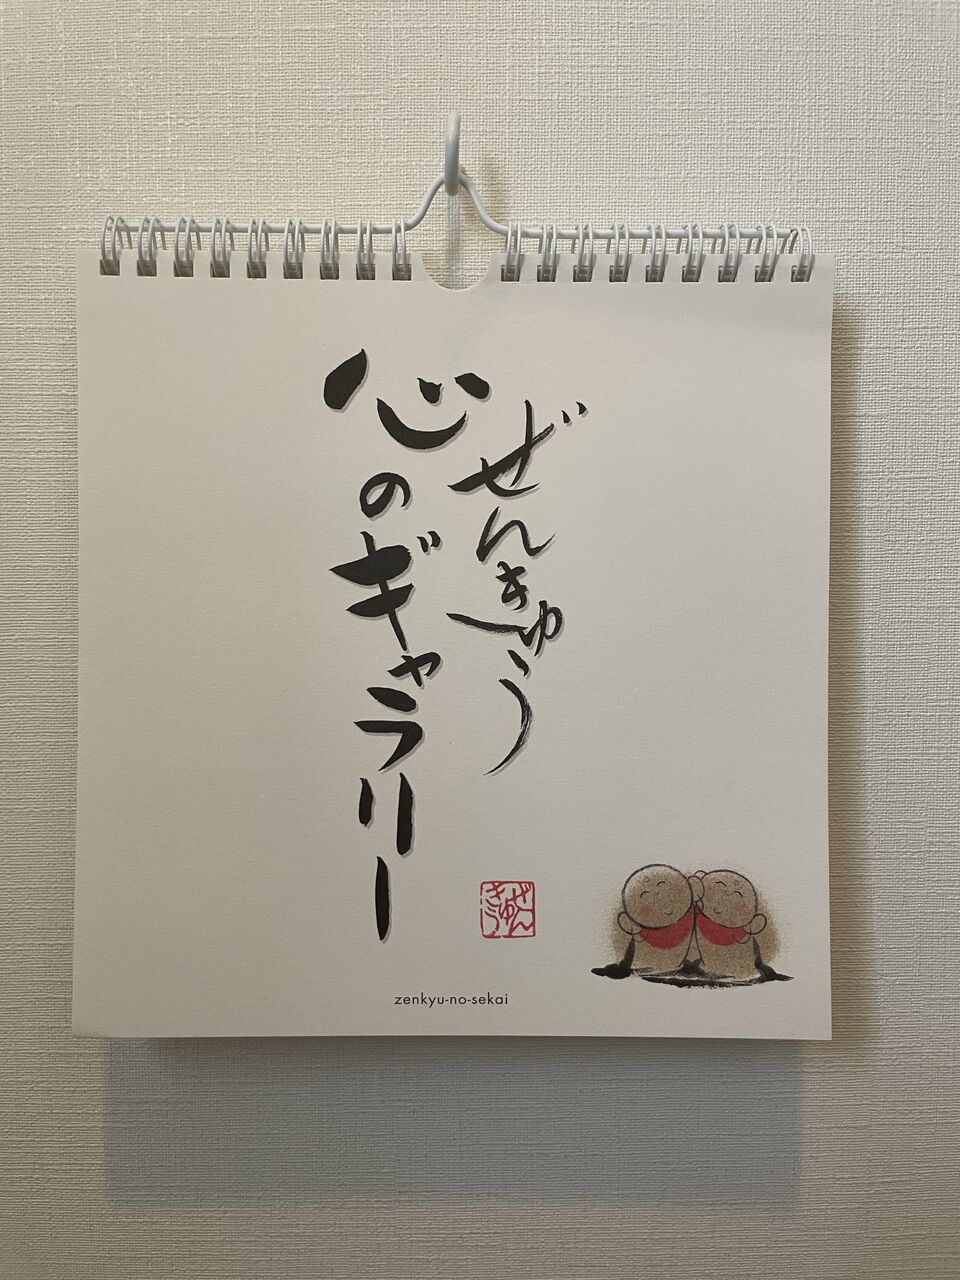 ぜんきゅう
心のギャラリー
ぜん
きゅう
zenkyu-no-sekai